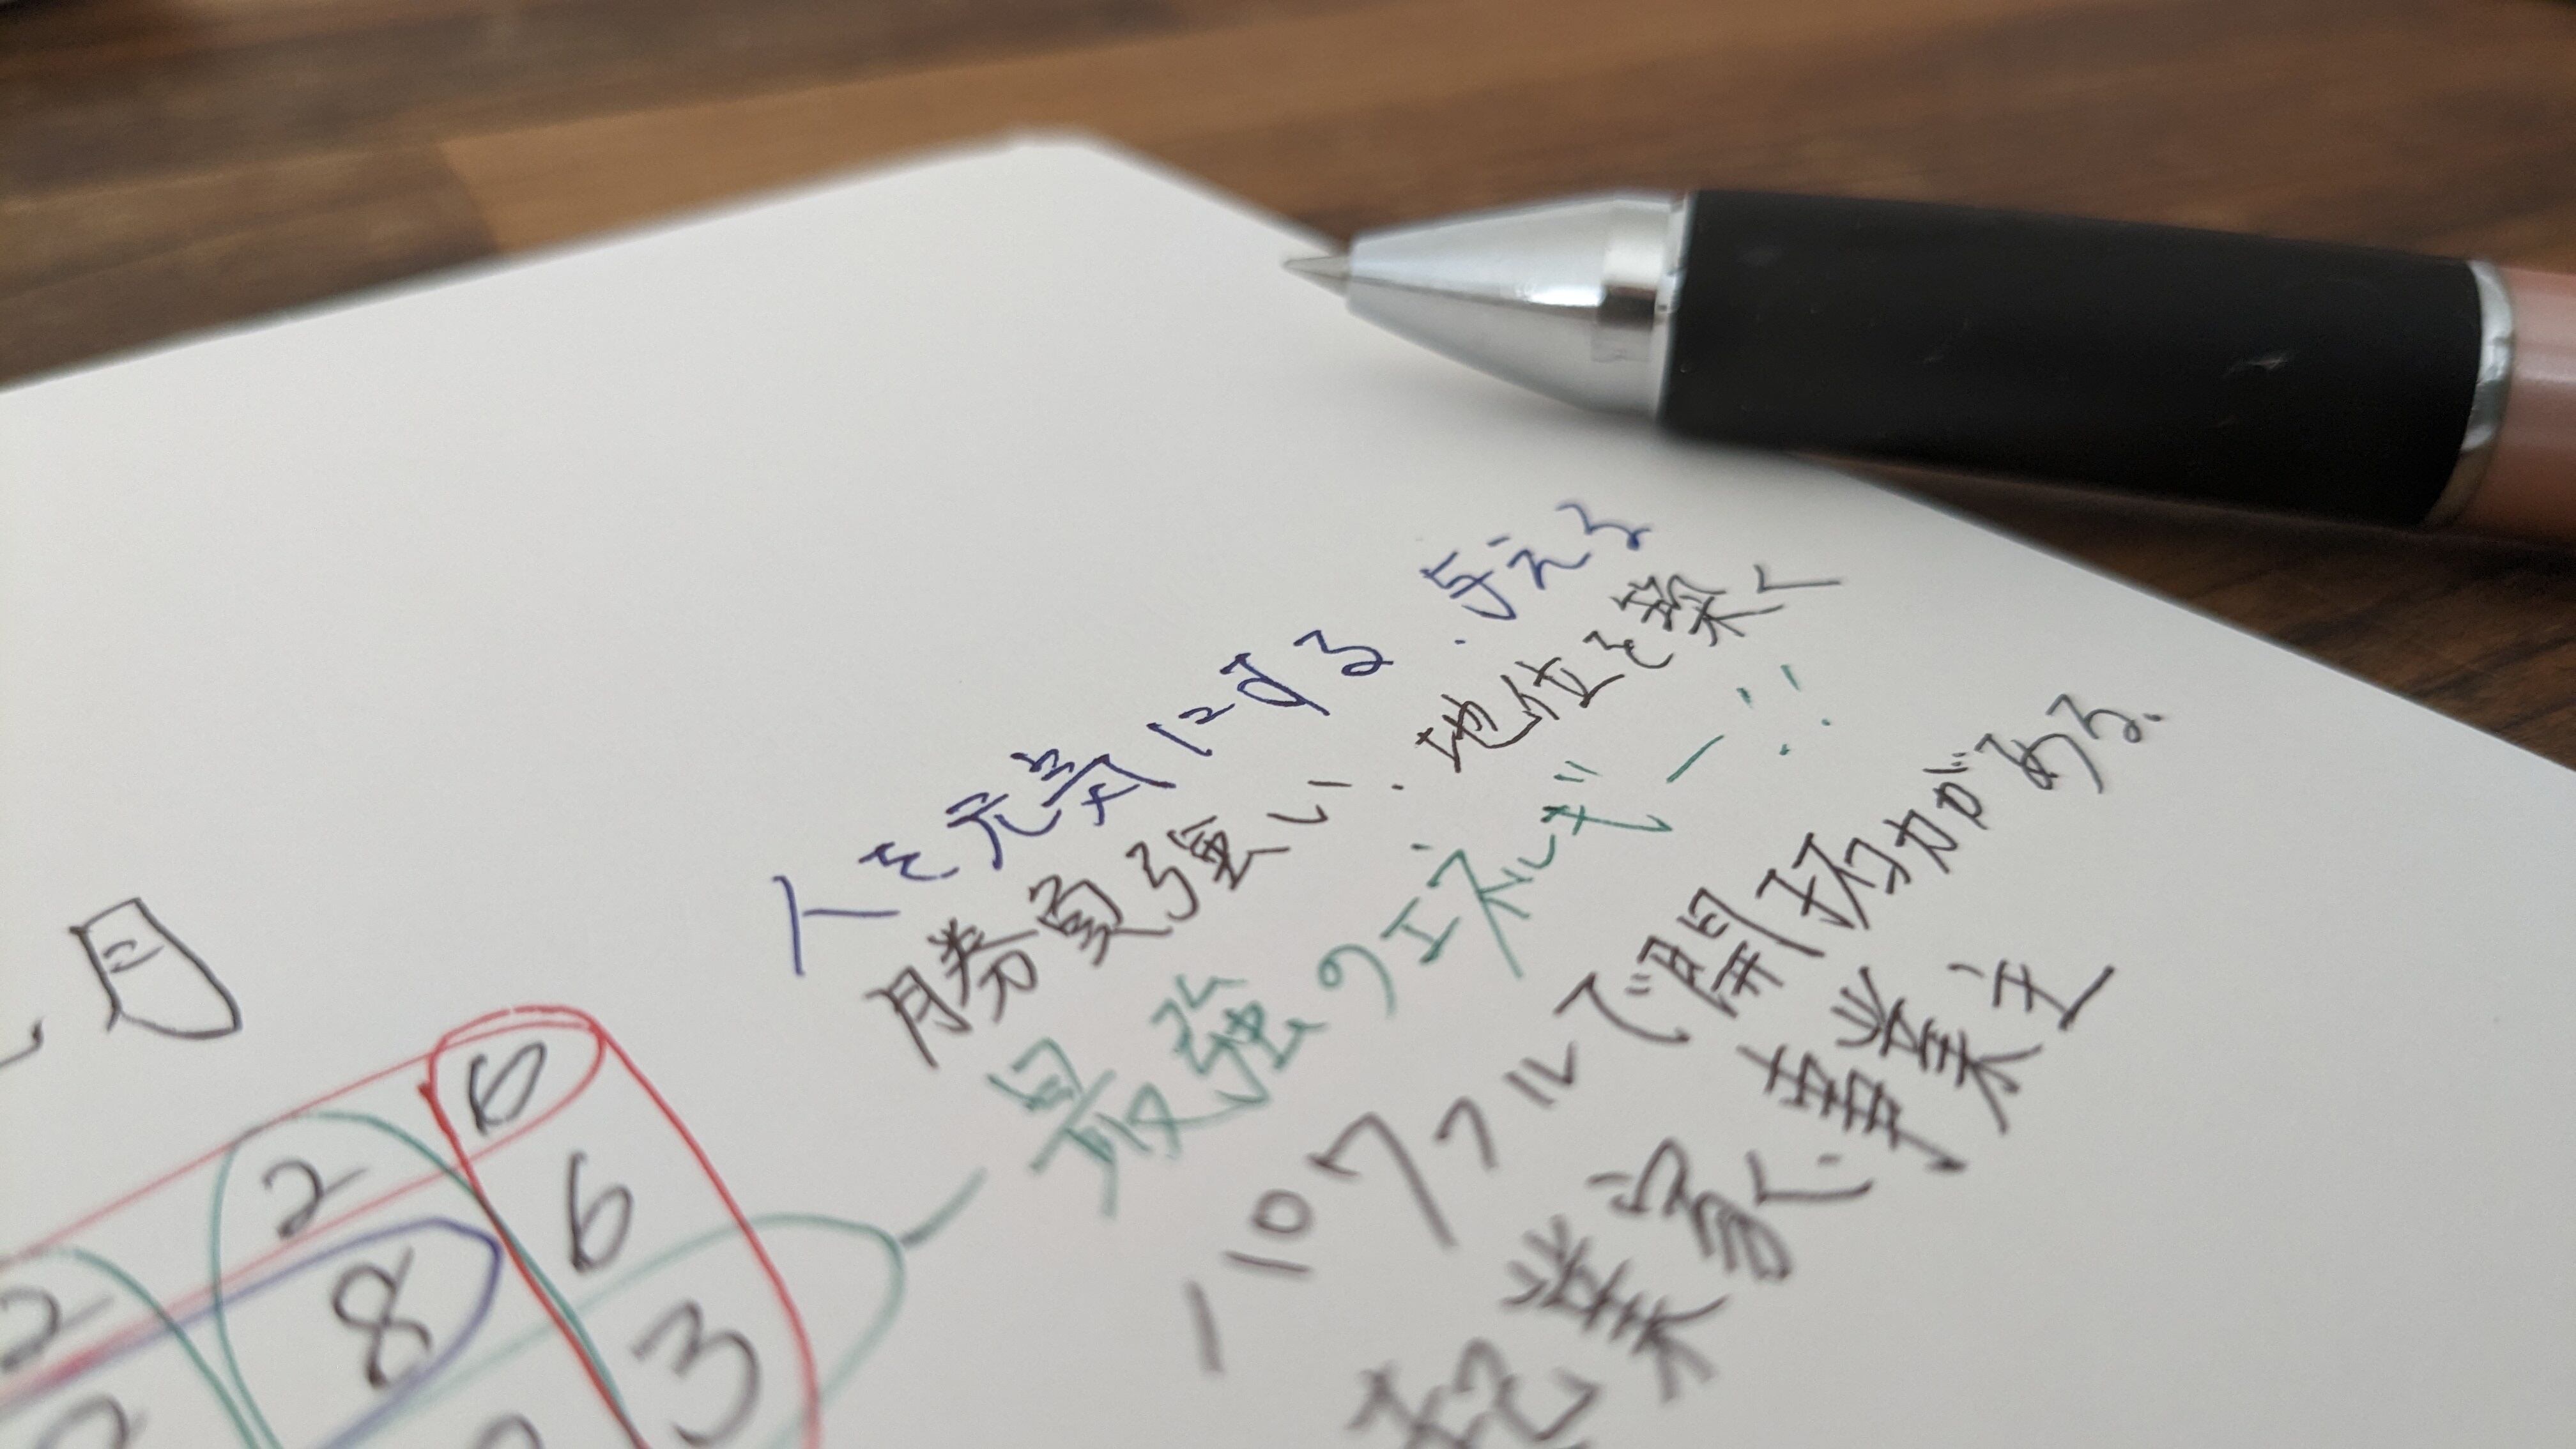 人を元気にする . 与える
勝負強い . 地位を築く
最強のエネルギー!!
パワフルで開拓力がある、
起業家、事業主
月
6
2
6
2
8
3